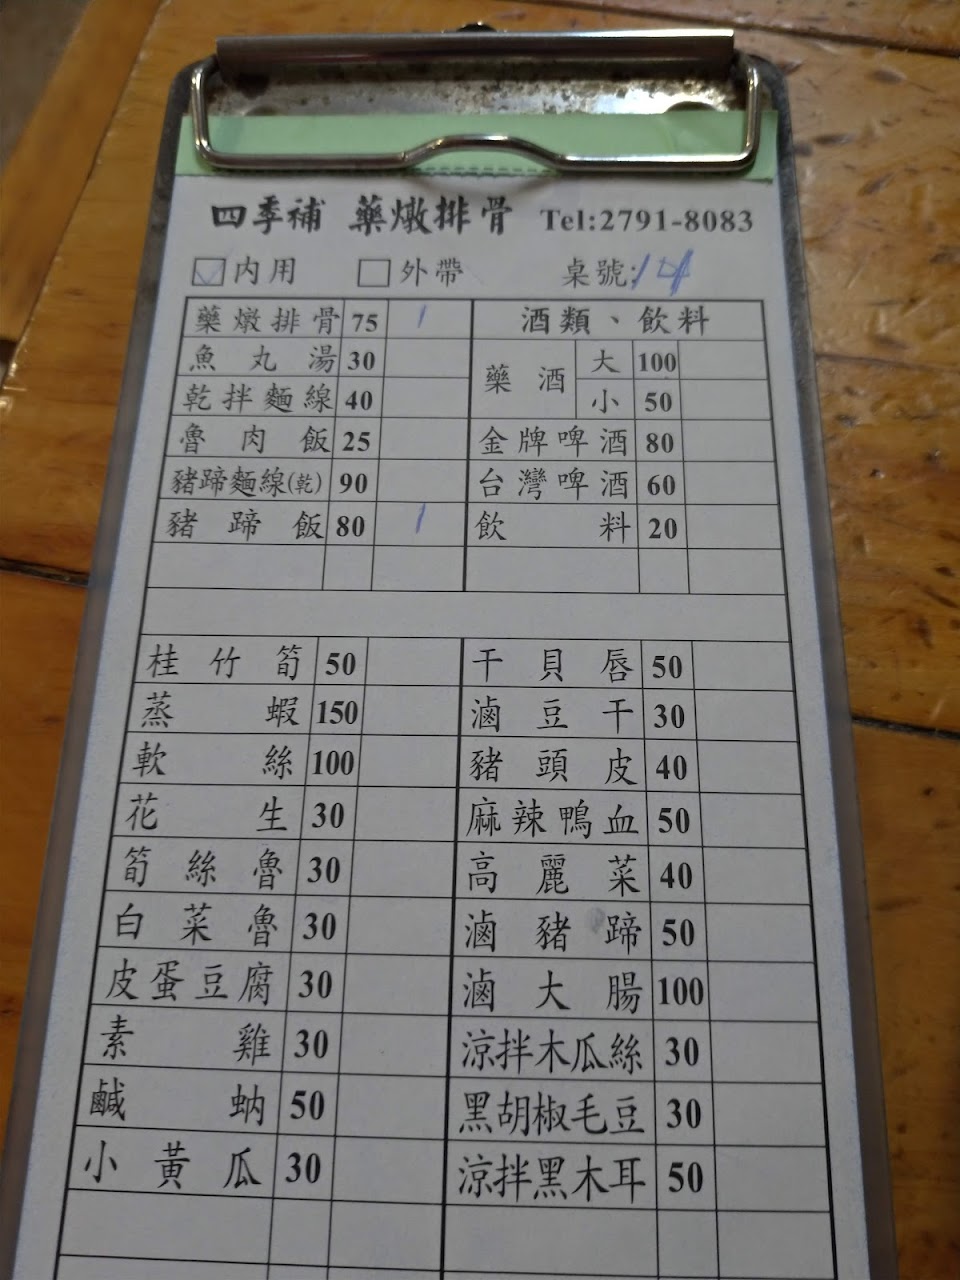 四季補 藥燉排骨 Tel:2791-8083
內用 外帶 桌號:14
藥燉排骨 75 1 酒類、飲料
魚丸湯 30 藥酒 大 100
乾拌麵線 40 小 50
魯肉飯 25 金牌啤酒 80
豬蹄麵線(乾) 90 台灣啤酒 60
豬蹄飯 80 1 飲料 20
桂竹筍 50 干貝唇 50
蒸蝦 150 滷豆干 30
軟絲 100 豬頭皮 40
花生 30 麻辣鴨血 50
筍絲魯 30 高麗菜 40
白菜魯 30 滷豬蹄 50
皮蛋豆腐 30 滷大腸 100
素雞 30 涼拌木瓜絲 30
鹹蚋 50 黑胡椒毛豆 30
小黃瓜 30 涼拌黑木耳 50